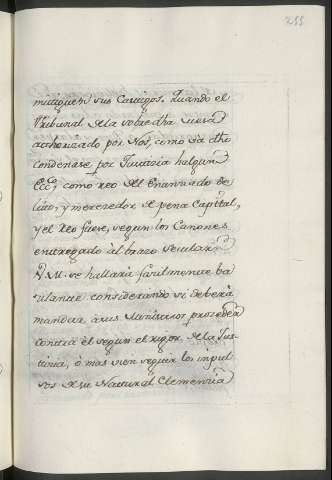 255
mitiguen sus Castigos. Quando el
Tribunal de la sobre dha nueva
authorizado por Nos, como va dho
condenase por Justicia halgun
Ecco, como reo del Enunziado de
lito, y merezedor de pena Capital,
y el Reo fuese, segun los Canones
entregado àl brazo secular
V. M. se hallarà
considerando si deberà
mandar à sus Ministros proceder
contra èl segun el rigor de la Jus
ticia, ò mas vien seguir los inpul
sos de su Natural Clemencia